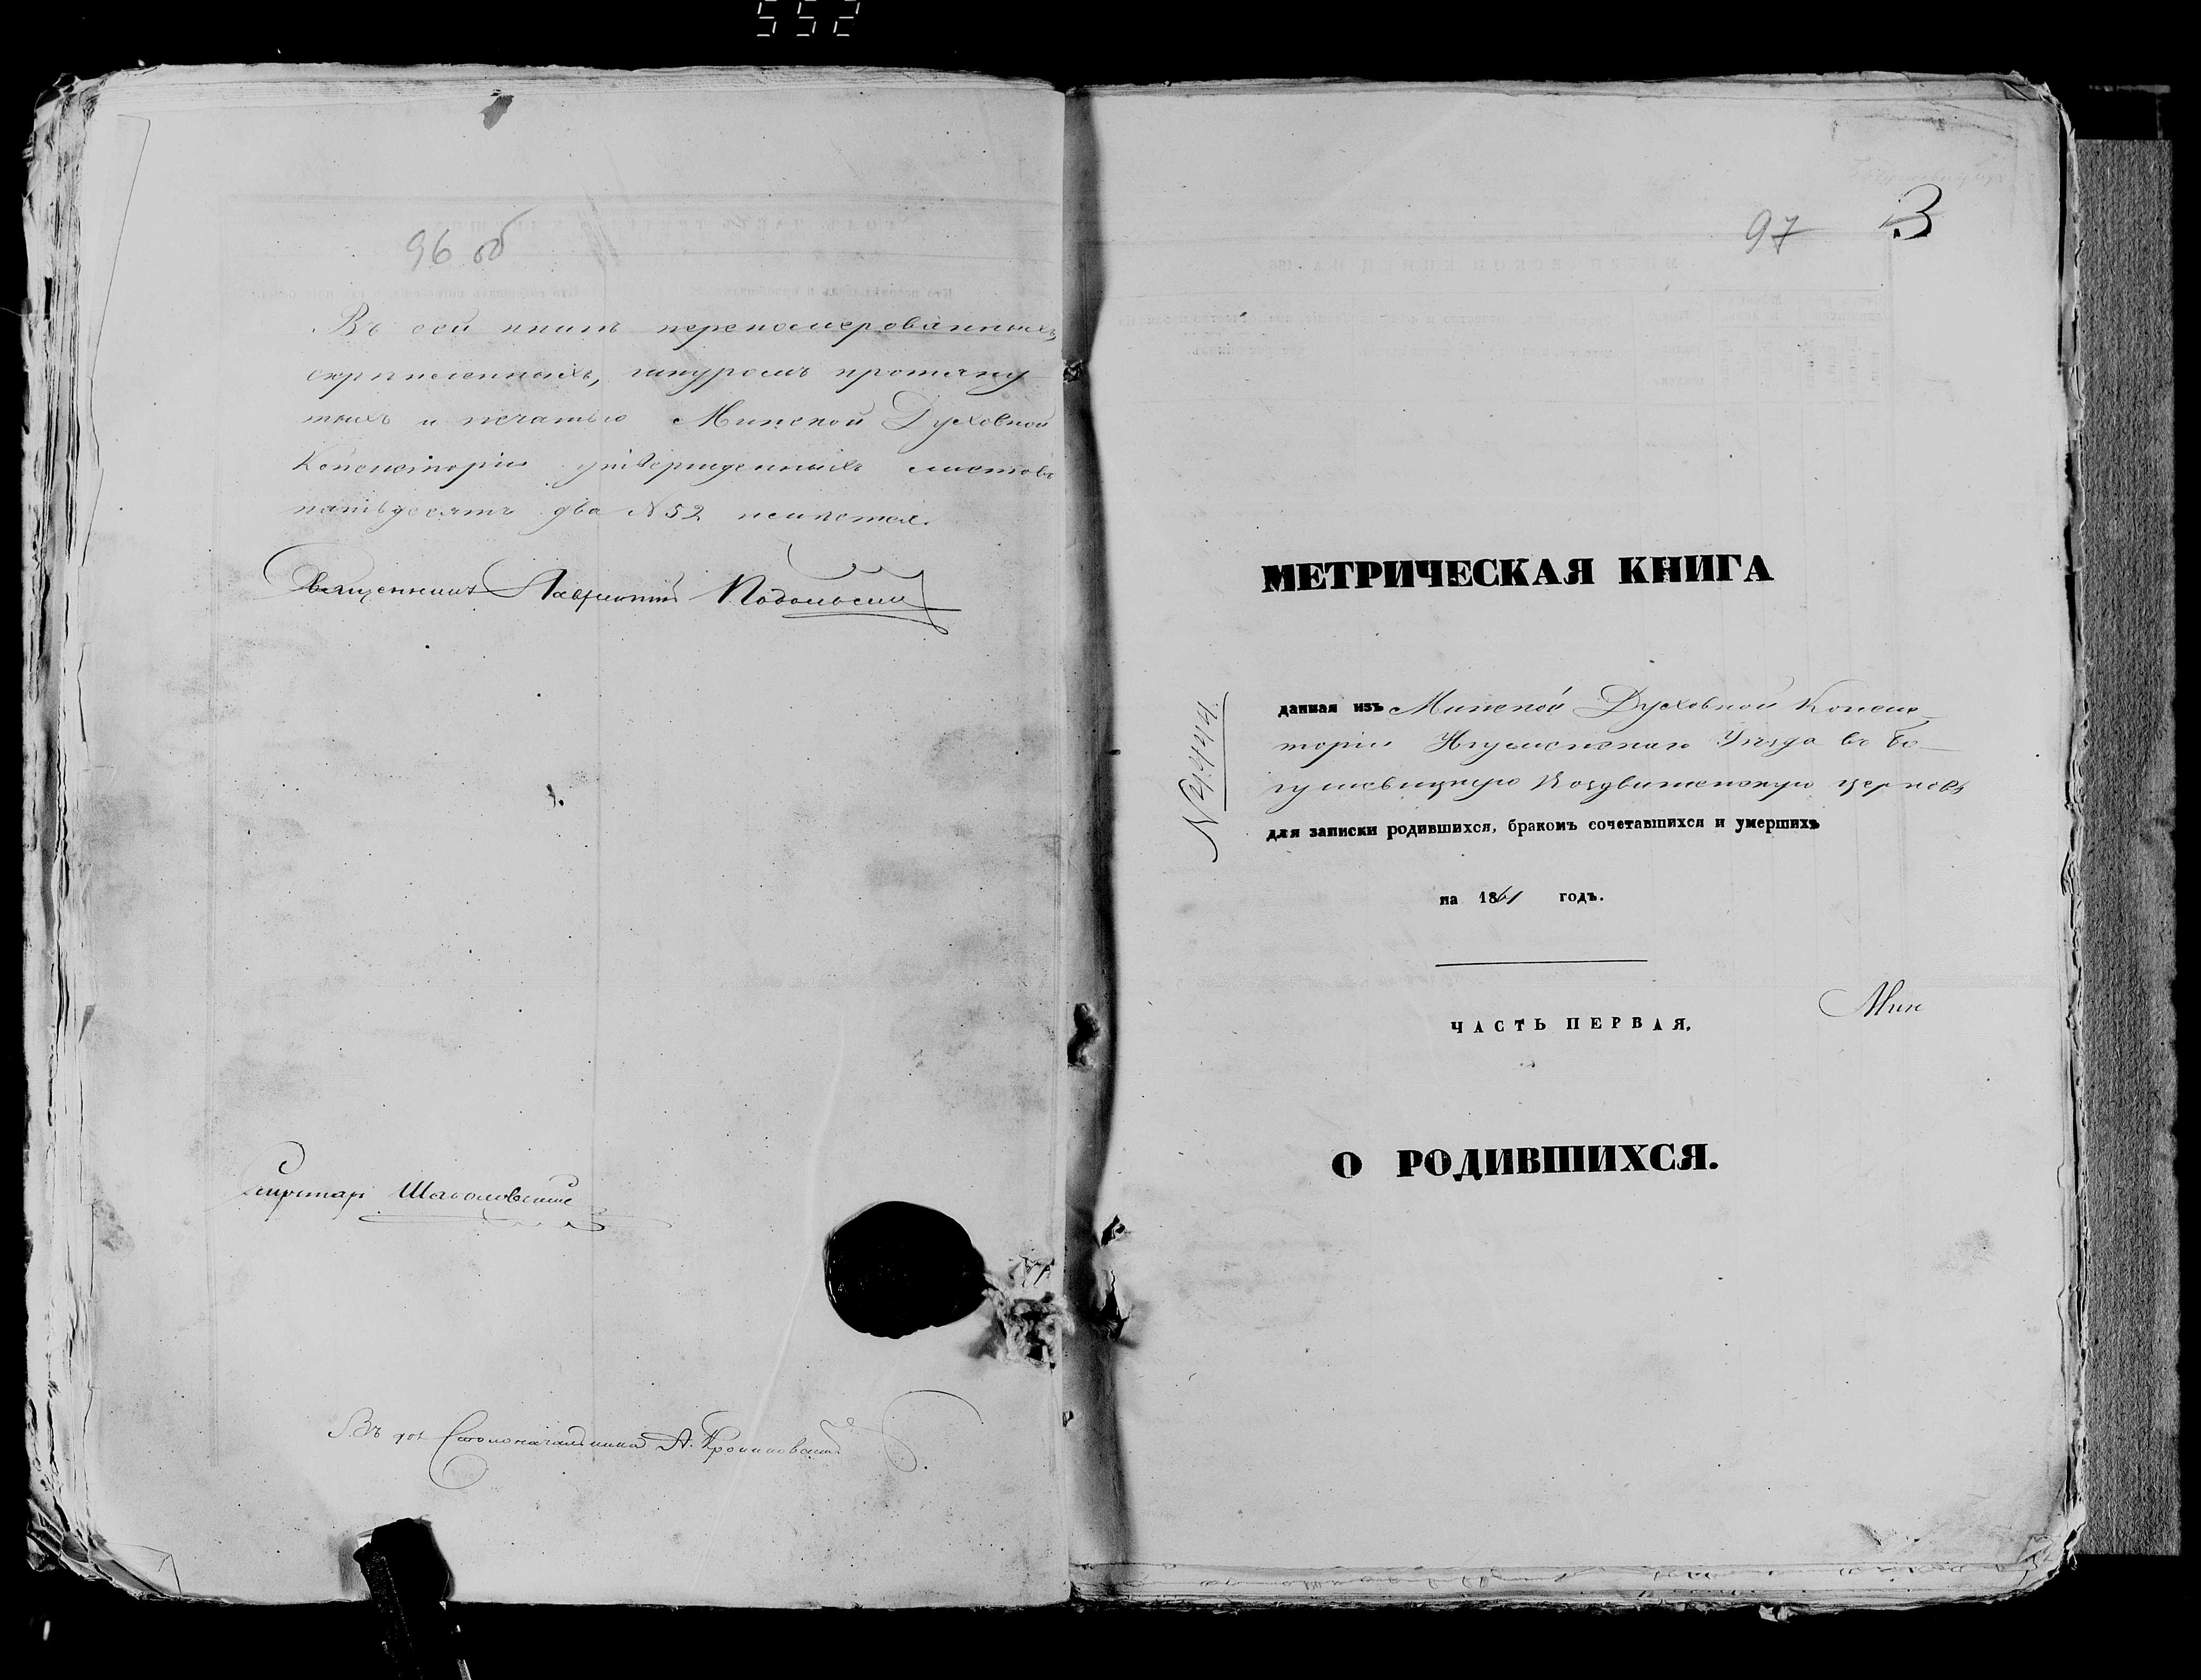 552
96 об
Въ сей книгѣ перенумерованныхъ,
скрѣпленныхъ, шнуромъ протяну
тыхъ и печатью Минской Духовной
Консисторіи утвержденныхъ листовъ
пятьдесятъ два № 52 имѣется.
Священникъ Лаврентій
Секретарь
Въ дол. Столоначальника А.
97 3
МЕТРИЧЕСКАЯ КНИГА
№ 4444.
данная изъ Минской Духовной Консис-
торіи Игуменскаго Уѣзда въ Бо-
гушевицкую Воздвиженскую церковь
для записки родившихся, бракомъ сочетавшихся и умершихъ
на 1861 годъ.
Мин
ЧАСТЬ ПЕРВАЯ.
О РОДИВШИХСЯ.